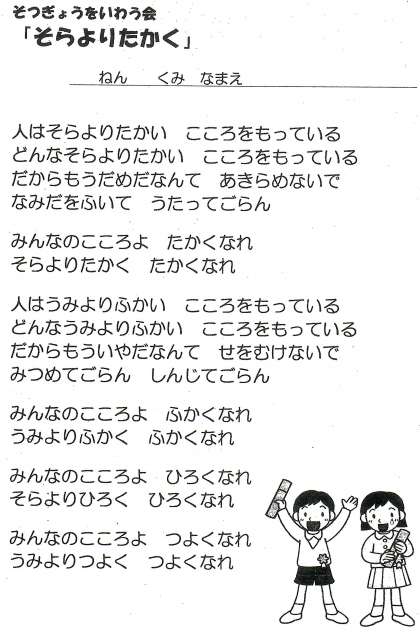 そつぎょうをいわう会
「そらよりたかく」
ねん　くみ　なまえ
人はそらよりたかい　こころをもっている
どんなそらよりたかい　こころをもっている
だからもうだめだなんて　あきらめないで
なみだをふいて　うたってごらん
みんなのこころよ　たかくなれ
そらよりたかく　たかくなれ
人はうみよりふかい　こころをもっている
どんなうみよりふかい　こころをもっている
だからもういやだなんて　せをむけないで
みつめてごらん　しんじてごらん
みんなのこころよ　ふかくなれ
うみよりふかく　ふかくなれ
みんなのこころよ　ひろくなれ
そらよりひろく　ひろくなれ
みんなのこころよ　つよくなれ
うみよりつよく　つよくなれ